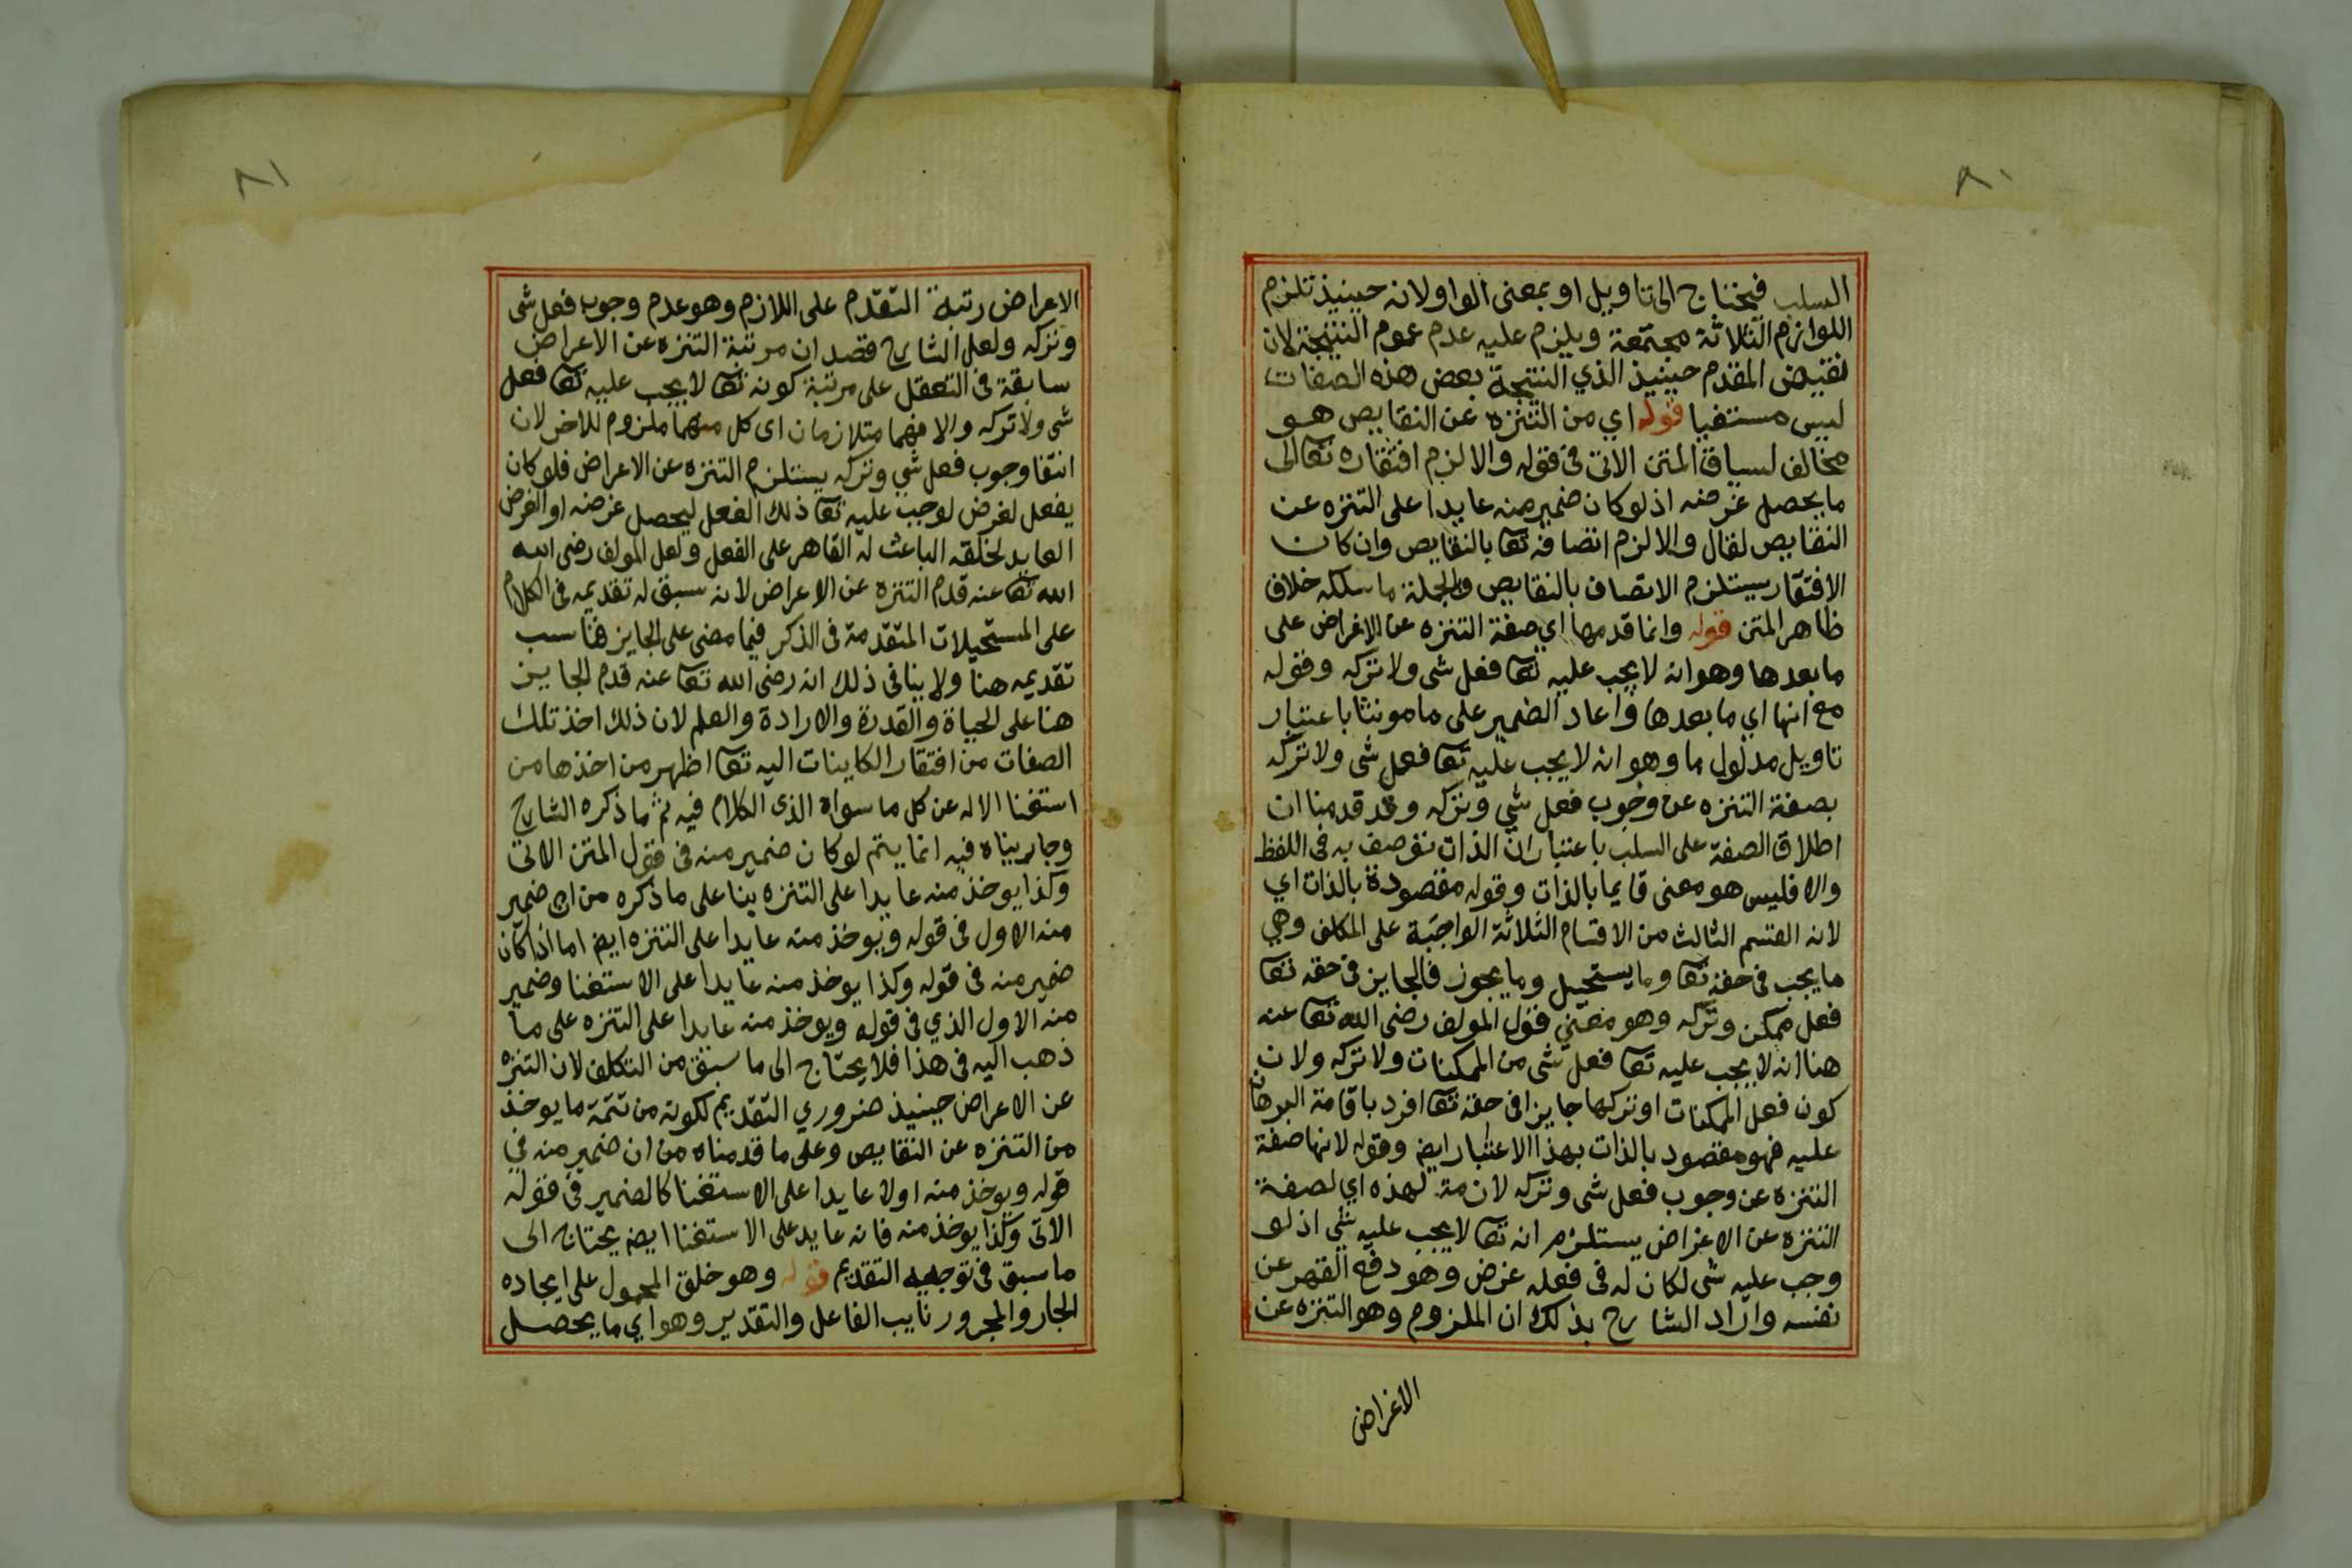 ٨٠
السلب فيحتاج الى تاويل او بمعنى الواو لانه حينيذ تلزم
اللوازم الثلاثة مجتمعة ويلزم عليه عدم عموم النتيجة لان
نقيض المقدم حينيذ الذي النتيجة بعض هذه الصفات
ليس مستغنيا قوله اي من التنزه عن النقايص هو
مخالف لسياق المتن الاتى فى قوله والا لزم افتقاره تعالى
ما يحصل غرضه اذ لو كان ضمير منه عايدا على التنزه عن
النقايص لقال والا لزم اتصافه تعا بالنقايص وان كان
الافتقار يستلزم الاتصاف بالنقايص وبالجملة ما سلكه خلاف
ظاهر المتن قوله وانما قدمها اي صفة التنزه عن الاغراض على
ما بعدها وهو انه لا يجب عليه تعا فعل شى ولا تركه وقوله
مع انها اي ما بعدها واعاد الضمير على ما مونثا باعتبار
تاويل مدلول ما وهو انه لا يجب عليه تعا فعل شى ولا تركه
بصفة التنزه عن وجوب فعل شي وتركه وقد قدمنا ان
اطلاق الصفة على السلب باعتبار ان الذات توصف به فى اللفظ
والا فليس هو معنى قايما بالذات وقوله مقصودة بالذات اي
لانه القسم الثالث من الاقسام الثلاثة الواجبة على المكلف وهي
ما يجب فى حقه تعا وما يستحيل وما يجوز فالجايز فى حقه تعا
فعل ممكن وتركه وهو معني قول المولف رضى الله تعا عنه
هنا انه لا يجب عليه تعا فعل شى من الممكنات ولا تركه ولان
كون فعل الممكنات او تركها جايزا فى حقه تعا افرد باقامة البرهان
عليه فهو مقصود بالذات بهذا الاعتبار ايض وقوله لانها صفة
التنزه عن وجوب فعل شى وتركه لازمة لهذه اي لصفة
التنزه عن الاغراض يستلزم انه تعا لا يجب عليه شي اذ لو
وجب عليه شى لكان له فى فعله غرض وهو دفع القهر عن
نفسه واراد الشارح بذلك ان الملزوم وهو التنزه عن
الاغراض
٨١
الاعراض رتبة التقدم على اللازم وهو عدم وجوب فعل شى
وتركه ولعل الشارح قصد ان مرتبة التنزه عن الاعراض
سابقة فى التعقل على مرتبة كونه تعا لا يجب عليه تعا فعل
شى ولا تركه والا فهما متلازمان اى كل منهما ملزوم للاخر لان
انتفا وجوب فعل شي وتركه يستلزم التنزه عن الاعراض فلو كان
يفعل لغرض لوجب عليه تعا ذلك الفعل ليحصل غرضه او الغرض
العايد لخلقه الباعث له القاهر على الفعل ولعل المولف رضى الله
الله تعا عنه قدم التنزه عن الاعراض لانه سبق له تقديمه فى الكلام
على المستحيلات المتقدمة فى الذكر فيما مضى على الجايز فناسب
تقديمه هنا ولا ينافى ذلك انه رضى الله تعا عنه قدم الجايز
هنا على الحياة والقدرة والارادة والعلم لان ذلك اخذ تلك
الصفات من افتقار الكاينات اليه تعا اظهر من اخذها من
استغنا الاله عن كل ما سواه الذى الكلام فيه ثم ما ذكره الشارح
وجاريناه فيه انما يتم لو كان ضمير منه فى قول المتن الاتى
وكذا يوخذ منه عايدا على التنزه بنا على ما ذكره من ان ضمير
منه الاول فى قوله ويوخذ منه عايدا على التنزه ايض اما اذا كان
ضمير منه فى قوله وكذا يوخذ منه عايدا على الاستغنا وضمير
منه الاول الذي فى قوله ويوخذ منه عايدا على التنزه على ما
ذهب اليه فى هذا فلا يحتاج الى ما سبق من التكلف لان التنزه
عن الاعراض حينيذ ضروري التقديم لكونه من تتمة ما يوخذ
من التنزه عن النقايص وعلى ما قدمناه من ان ضمير منه في
قوله ويوخذ منه اولا عايدا على الاستغنا كالضمير فى قوله
الاتى وكذا يوخذ منه فانه عايد على الاستغنا ايض يحتاج الى
ما سبق فى توجيه التقديم قوله وهو خلق المحمول على ايجاده
الجار والمجرور نايب الفاعل والتقدير وهو اي ما يحصل